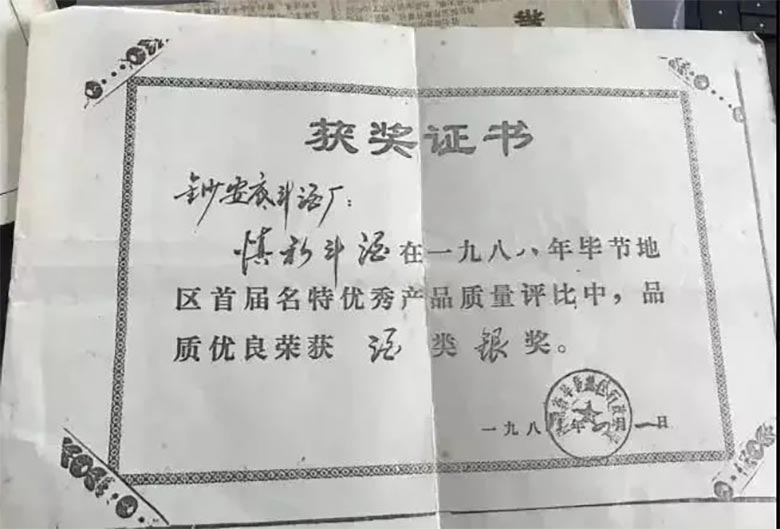 获奖证书
金沙安底斗酒厂：
慎初斗酒在一九八八年毕节地
区首届名特优秀产品质量评比中，品
质优良荣获 酒 类 银 奖。
一九八 年 一日